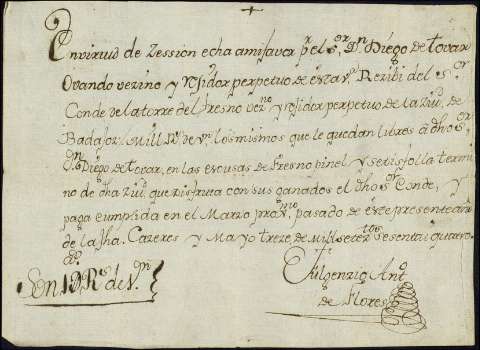 En virtud de Zession echa ami favor pr el Sor Dn Diego de tovar
Ovando vezino y Rejidor perpetuo de esta va. Rezibi del Sor
Conde de la torre del fresno vezno y rejidor perpetuo de la Ziud. de
Badajoz. Mill Rs. de vn. los mismos que le quedan libres a dho Sor
Dn Diego de tovar, en las escusas de fresno pinel y termi
no de dha Ziud. que disfruta con sus ganados el dho Sor Conde, y
paga cumplida en el Marzo proxmo pasado de este presente año
de la fha. Cazeres y Mayo treze de mill setezs. sesenta i quatro
as.
Son 1D Rs de vn.
Fulgenzio Anto.
de Flores